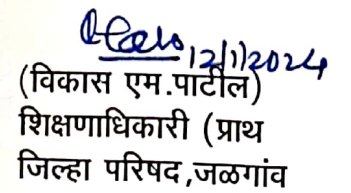 12/1/2024
(विकास एम.पाटील)
शिक्षणाधिकारी (प्राथ
जिल्हा परिषद,जळगांव